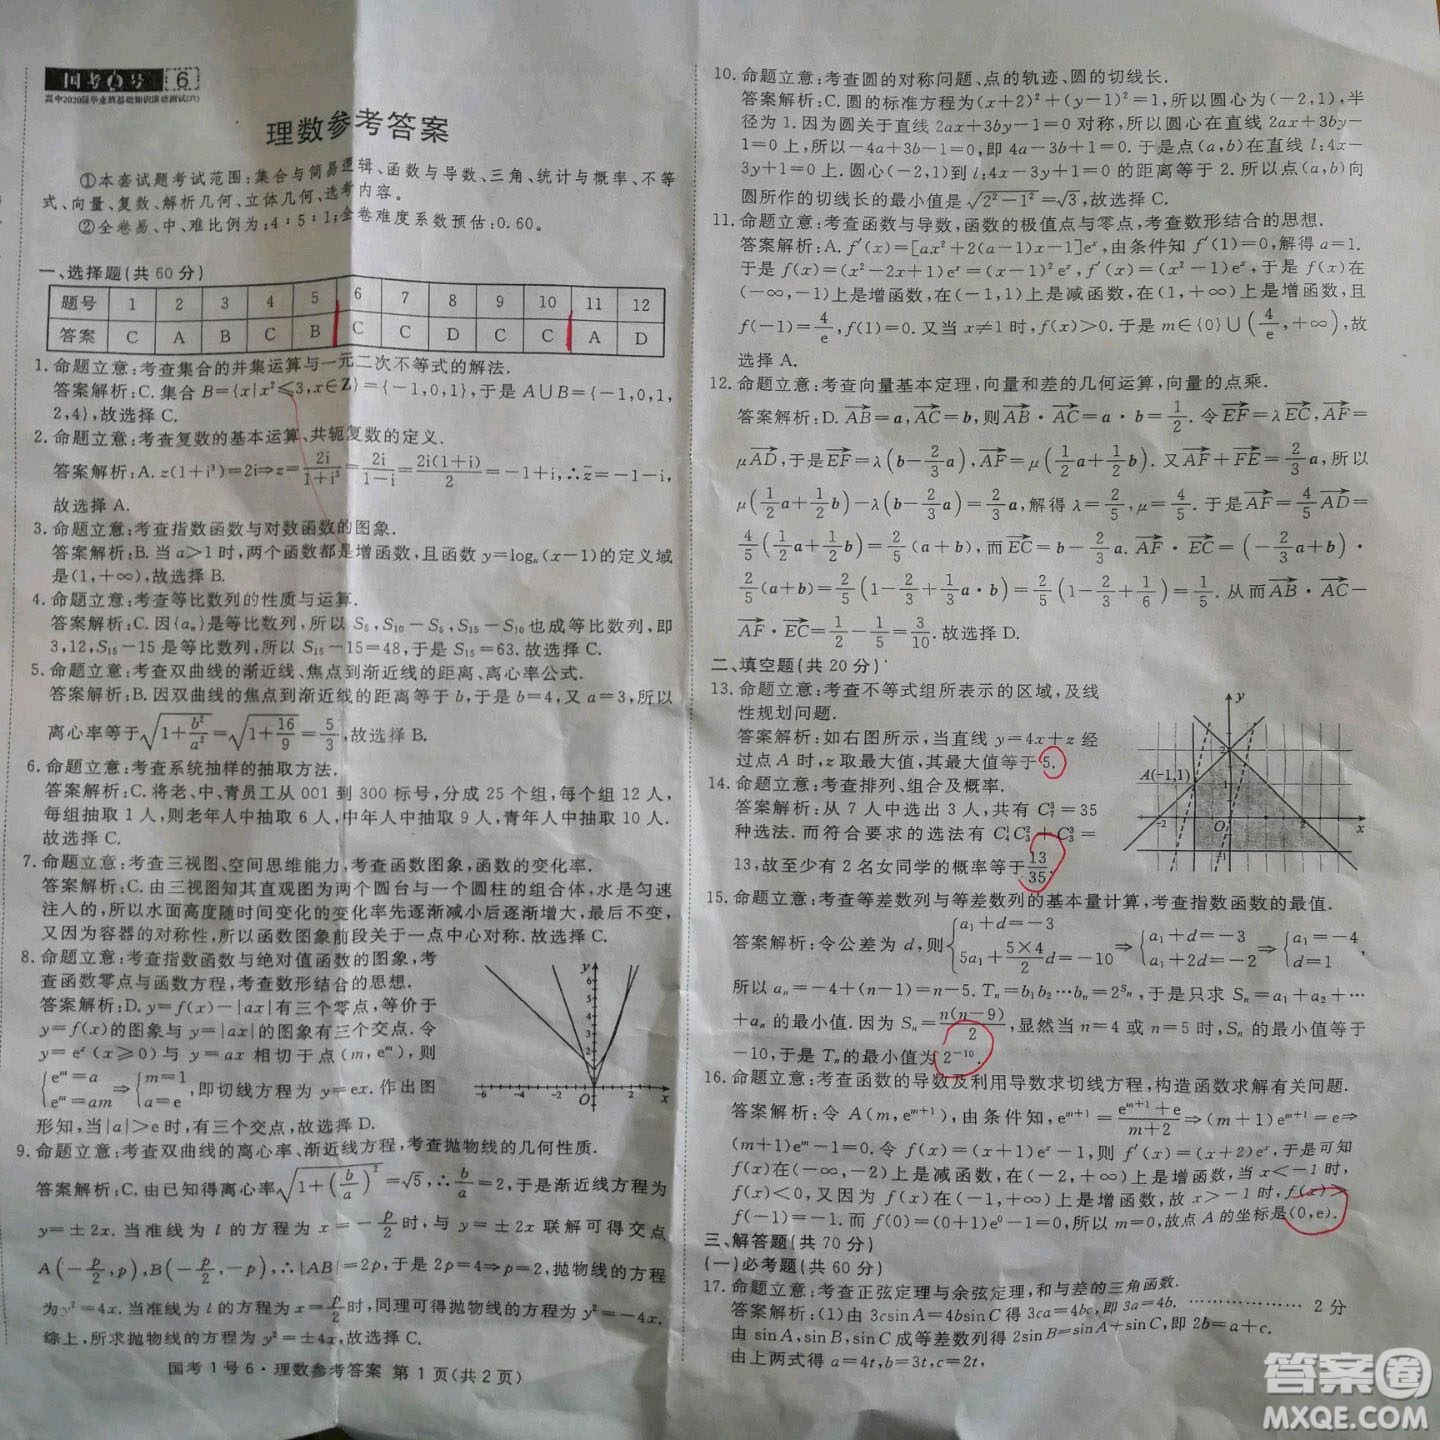 国考1号 6
高中2020届毕业班基础知识滚动测试(六)
理数参考答案
①本套试题考试范围:集合与简易逻辑、函数与导数、三角、统计与概率、不等
式、向量、复数、解析几何、立体几何、选考内容。
②全卷易、中、难比例为:4:5:1;全卷难度系数预估:0.60。
一、选择题(共60分)
题号 1 2 3 4 5 6 7 8 9 10 11 12
答案 C A B C B C C D C C A D
1. 命题立意:考查集合的并集运算与一元二次不等式的解法.
答案解析:C. 集合 B={x|x²≤3,x∈Z}={-1,0,1},于是 A∪B={-1,0,1,
2,4},故选择 C.
2. 命题立意:考查复数的基本运算、共轭复数的定义.
答案解析:A. z(1+i³)=2i⇒z=2i/(1+i³)=2i/(1-i)=2i(1+i)/2=-1+i,∴z̄=-1-i,
故选择 A.
3. 命题立意:考查指数函数与对数函数的图象.
答案解析:B. 当 a>1 时,两个函数都是增函数,且函数 y=logₐ(x-1)的定义域
是(1,+∞),故选择 B.
4. 命题立意:考查等比数列的性质与运算.
答案解析:C. 因{aₙ}是等比数列,所以 S₅,S₁₀-S₅,S₁₅-S₁₀也成等比数列,即
3,12,S₁₅-15 是等比数列,所以 S₁₅-15=48,于是 S₁₅=63. 故选择 C.
5. 命题立意:考查双曲线的渐近线、焦点到渐近线的距离、离心率公式.
答案解析:B. 因双曲线的焦点到渐近线的距离等于 b,于是 b=4,又 a=3,所以
离心率等于√(1+b²/a²)=√(1+16/9)=5/3,故选择 B.
6. 命题立意:考查系统抽样的抽取方法.
答案解析:C. 将老、中、青员工从 001 到 300 标号,分成 25 个组,每个组 12 人,
每组抽取 1 人,则老年人中抽取 6 人,中年人中抽取 9 人,青年人中抽取 10 人.
故选择 C.
7. 命题立意:考查三视图、空间思维能力,考查函数图象,函数的变化率.
答案解析:C. 由三视图知其直观图为两个圆台与一个圆柱的组合体,水是匀速
注入的,所以水面高度随时间变化的变化率先逐渐减小后逐渐增大,最后不变,
又因为容器的对称性,所以函数图象前段关于一点中心对称. 故选择 C.
8. 命题立意:考查指数函数与绝对值函数的图象,考
查函数零点与函数方程,考查数形结合的思想.
答案解析:D. y=f(x)-|ax|有三个零点,等价于
y=f(x)的图象与 y=|ax|的图象有三个交点. 令
y=eˣ(x≥0)与 y=ax 相切于点(m,eᵐ),则
{eᵐ=a, eᵐ=am ⇒ {m=1, a=e,即切线方程为 y=ex. 作出图
形知,当|a|>e 时,有三个交点,故选择 D.
y 6 5 4 3 2 1 -6 -4 -2 O 2 x
9. 命题立意:考查双曲线的离心率、渐近线方程,考查抛物线的几何性质.
答案解析:C. 由已知得离心率√(1+(b/a)²)=√5,∴b/a=2,于是渐近线方程为
y=±2x. 当准线为 l 的方程为 x=-p/2时,与 y=±2x 联解可得交点
A(-p/2,p),B(-p/2,-p),∴|AB|=2p,于是 2p=4⇒p=2,抛物线的方程
为 y²=4x. 当准线为 l 的方程为 x=p/2时,同理可得抛物线的方程为 y²=-4x.
综上,所求抛物线的方程为 y²=±4x,故选择 C.
国考1号6·理数参考答案 第1页(共2页)
10. 命题立意:考查圆的对称问题、点的轨迹、圆的切线长.
答案解析:C. 圆的标准方程为(x+2)²+(y-1)²=1,所以圆心为(-2,1),半
径为 1. 因为圆关于直线 2ax+3by-1=0 对称,所以圆心在直线 2ax+3by-
1=0 上,所以-4a+3b-1=0,即 4a-3b+1=0. 于是点(a,b)在直线 l:4x-
3y+1=0 上. 圆心(-2,1)到 l:4x-3y+1=0 的距离等于 2. 所以点(a,b)向
圆所作的切线长的最小值是 √(2²-1²)=√3,故选择 C.
11. 命题立意:考查函数与导数,函数的极值点与零点,考查数形结合的思想.
答案解析:A. f′(x)=[ax²+2(a-1)x-1]eˣ,由条件知 f′(1)=0,解得 a=1.
于是 f(x)=(x²-2x+1)eˣ=(x-1)²eˣ,f′(x)=(x²-1)eˣ,于是 f(x)在
(-∞,-1)上是增函数,在(-1,1)上是减函数,在(1,+∞)上是增函数,且
f(-1)=4/e,f(1)=0. 又当 x≠1 时,f(x)>0. 于是 m∈{0}∪(4/e,+∞),故
选择 A.
12. 命题立意:考查向量基本定理,向量和差的几何运算,向量的点乘.
答案解析:D. AB→=a,AC→=b,则AB→·AC→=a·b=1/2. 令EF→=λEC→,AF→=
μAD→,于是EF→=λ(b-2/3a),AF→=μ(1/2a+1/2b). 又AF→+FE→=2/3a,所以
μ(1/2a+1/2b)-λ(b-2/3a)=2/3a,解得 λ=2/5,μ=4/5. 于是AF→=4/5AD→=
4/5(1/2a+1/2b)=2/5(a+b),而EC→=b-2/3a. AF→·EC→=(-2/3a+b)·
2/5(a+b)=2/5(1-2/3+1/3a·b)=2/5(1-2/3+1/6)=1/5. 从而AB→·AC→-
AF→·EC→=1/2-1/5=3/10. 故选择 D.
二、填空题(共20分)
13. 命题立意:考查不等式组所表示的区域,及线
性规划问题.
答案解析:如右图所示,当直线 y=4x+z 经
过点 A 时,z 取最大值,其最大值等于 5.
y 2 A(-1,1) -2 O 1 2 x
14. 命题立意:考查排列、组合及概率.
答案解析:从 7 人中选出 3 人,共有 C₇³=35
种选法. 而符合要求的选法有 C₄¹C₃²+C₃³=
13,故至少有 2 名女同学的概率等于13/35.
15. 命题立意:考查等差数列与等差数列的基本量计算,考查指数函数的最值.
答案解析:令公差为 d,则{a₁+d=-3, 5a₁+(5×4)/2 d=-10 ⇒ {a₁+d=-3, a₁+2d=-2 ⇒ {a₁=-4, d=1,
所以 aₙ=-4+(n-1)=n-5. Tₙ=b₁b₂…bₙ=2^Sₙ,于是只求 Sₙ=a₁+a₂+…
+aₙ 的最小值. 因为 Sₙ=n(n-9)/2,显然当 n=4 或 n=5 时,Sₙ 的最小值等于
-10,于是 Tₙ的最小值为 2⁻¹⁰.
16. 命题立意:考查函数的导数及利用导数求切线方程,构造函数求解有关问题.
答案解析:令 A(m,eᵐ⁺¹),由条件知,eᵐ⁺¹=(eᵐ⁺¹+e)/(m+2)⇒(m+1)eᵐ⁺¹=e⇒
(m+1)eᵐ-1=0. 令 f(x)=(x+1)eˣ-1,则 f′(x)=(x+2)eˣ,于是可知
f(x)在(-∞,-2)上是减函数,在(-2,+∞)上是增函数,当 x<-1 时,
f(x)<0,又因为 f(x)在(-1,+∞)上是增函数,故 x>-1 时,f(x)>
f(-1)=-1. 而 f(0)=(0+1)e⁰-1=0,所以 m=0,故点 A 的坐标是(0,e).
三、解答题(共70分)
(一)必考题(共60分)
17. 命题立意:考查正弦定理与余弦定理,和与差的三角函数.
答案解析:(1)由 3csinA=4bsinC 得 3ca=4bc,即 3a=4b. ………………… 2 分
由 sinA,sinB,sinC 成等差数列得 2sinB=sinA+sinC,即 2b=a+c.
由上两式得 a=4t,b=3t,c=2t,
答案圈
MXQE.COM